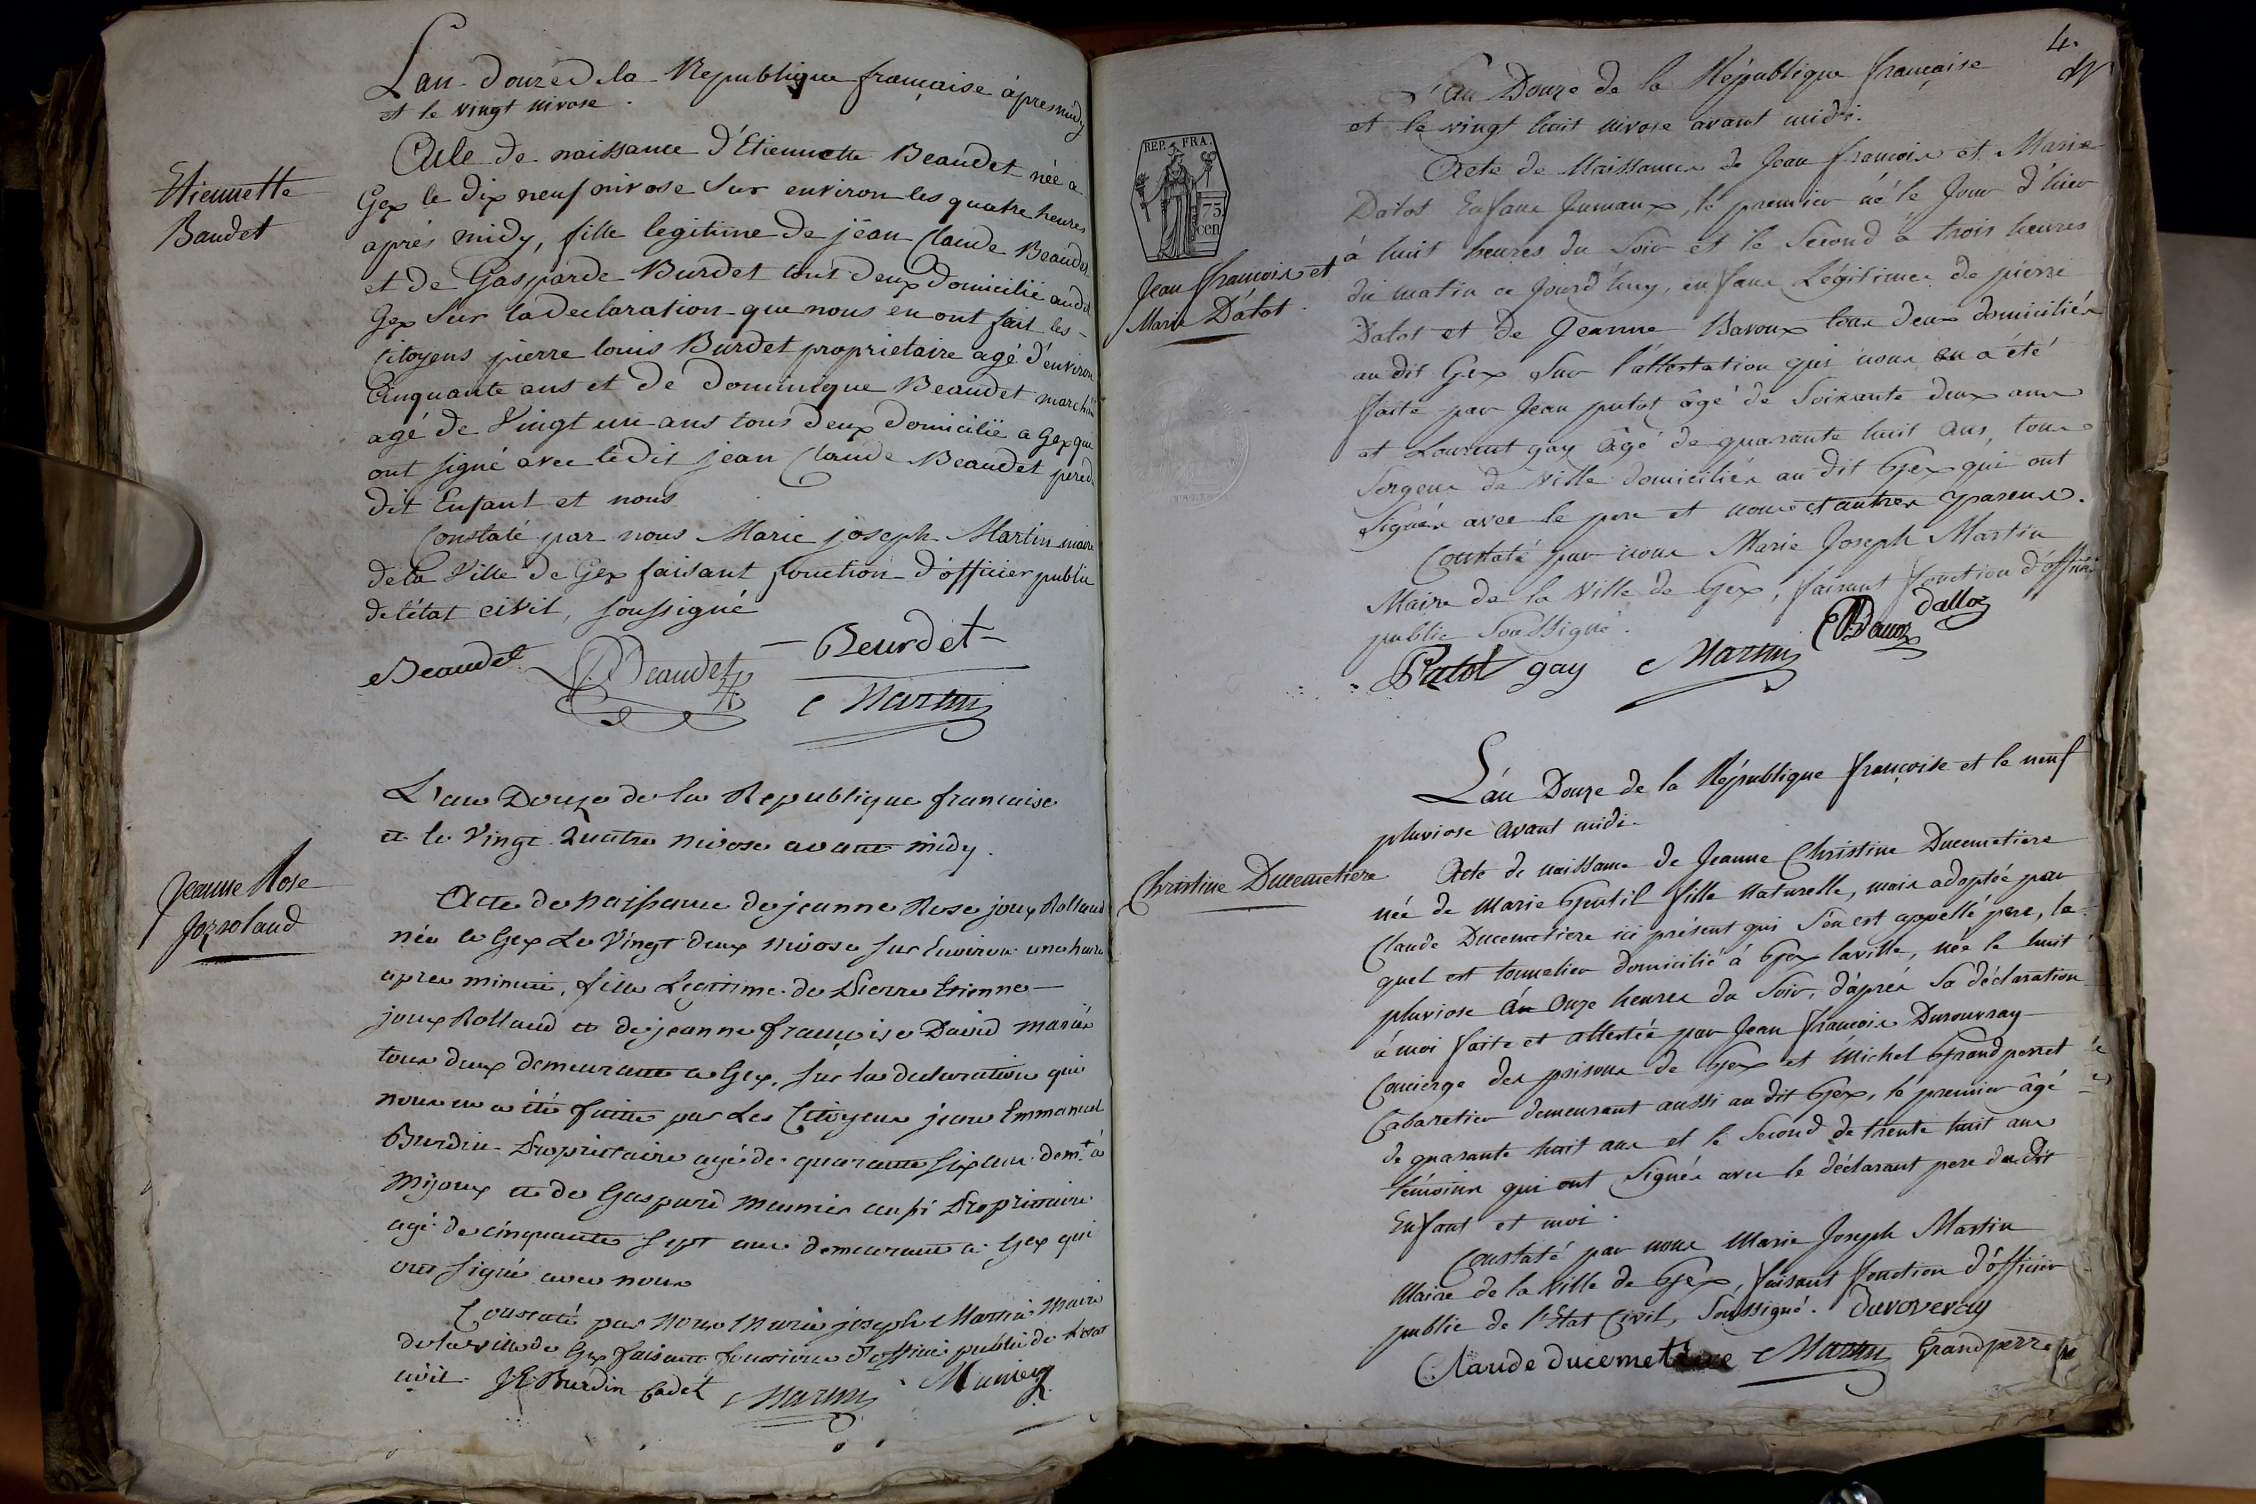 L'an douze de la Republique française àpres midy
et le vingt nivose.
Etiennette
Baudet
Acte de naissance d'Etiennette Beaudet née a
Gex le dix neuf nivose sur environ les quatre heures
après midy, fille legitime de jean Claude Beaudet
et de Gasparde Burdet tout deux domicilié audit
Gex sur la declaration que nous en ont fait les
Citoyens pierre louis Burdet proprietaire agé d'environ
Cinquante ans et de dominique Beaudet marchan
agé de Vingt un ans tous deux domicilié a Gex que
ont signé avec ledit jean Claude Beaudet pere d
dit Enfant et nous
Constaté par nous Marie joseph Martin maire
de la Ville de Gex faisant fonction d'officier public
de l'état civil, soussigné
Beaudet Beaudet Beurdet
Martin
L'an Douze de la Republique francaise
et le Vingt Quatre nivose avant midy.
Jeanne Rose
Jozroland
Acte de Naissance de jeanne Rose joux Rolland
née a Gex Le Vingt deux nivose sur Environ une heure
apres minuit, fille Legitime de Pierre Etienne
joux Rolland et de jeanne françoise David mariés
tous deux demeurants a Gex, sur la declaration qui
nous en a été faitte par Les Citoyens jean Emmanuel
Burdin Proprietaire agé de quarante six ans demt. à
Mijoux et de Gaspard meunier aussi Proprietaire
agé de cinquante sept ans demeurant a Gex qui
ont signé avec nous
Constaté par Nous Marie joseph Martin Maire
de la ville de Gex faisant fonction d'officier public de l'etat
civil. J E Burdin Cadet Martin Munier
4.
REP. FRA.
75
cen
L'an Douze de la République française
et le vingt huit nivose avant midi.
Jean françois et
Marie Dalot.
Acte de Naissance de Jean françois et Marie
Dalot Enfans Jumaux, le premier né le Jour d'hier
à huit heures du Soir et le Second à trois heures
du matin ce Jourd'huy, enfans Légitimes de pierre
Dalot et de Jeanne Baroux tous deux domiciliés
au dit Gex Sur l'attestation qui nous en a été
faite par Jean putot âgé de Soixante deux ans
et Laurent gay âgé de quarante huit ans, tous
Sergens de Ville domiciliés au dit Gex qui ont
Signés avec le pere et nous et autres parens.
Constaté par nous Marie Joseph Martin
Maire de la Ville de Gex, faisant fonction d'officier
public Soussigné.
Putot gay Martin dalloz
L'an Douze de la République françoise et le neuf
pluviose avant midi.
Christine Ducemetiere
Acte de naissance de Jeanne Christine Ducemetiere
née de Marie Gentil fille Naturelle, mais adoptée par
Claude Ducemetiere ici présent qui s'en est appellé pere, le
quel est tonnelier domicilié à Gex laville, née le huit
pluviose à Onze heures du Soir, d'après Sa déclaration
à moi faite et attestée par Jean françois Durouvray
Concierge des prisons de Gex et Michel Grandperret
Cabaretier demeurant aussi au dit Gex, le premier âgé
de quarante huit ans et le Second de trente huit ans
témoins qui ont Signés avec le déclarant pere du dit
Enfant et moi.
Constaté par nous Marie Joseph Martin
Maire de la Ville de Gex, faisant fonction d'officier
public de l'Etat Civil, Soussigné. duroveray
Claude ducemetiere Martin Grandperret